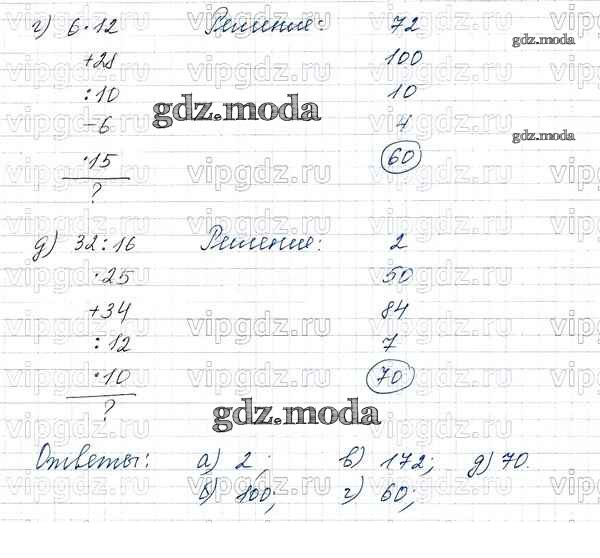 г) 6·12 Решение: 72
+28 100
:10 10
-6 4
·15 60
?
д) 32:16 Решение: 2
·25 50
+34 84
:12 7
·10 70
?
Ответы: а) 2; в) 172; д) 70.
б) 100; г) 60;
gdz.moda
gdz.moda
gdz.moda
gdz.moda
vipgdz.ru